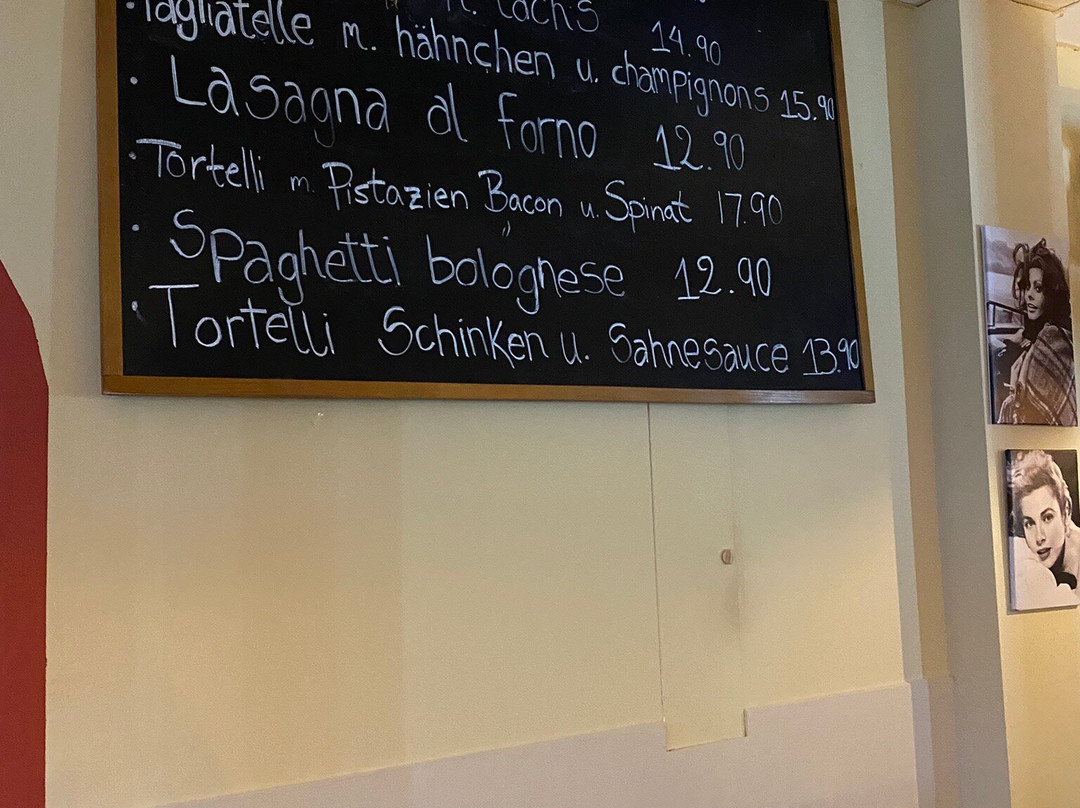 Lachs 14.90
·Tagliatelle m. hähnchen u. champignons 15.90
· Lasagna al forno 12.90
·Tortelli m. Pistazien Bacon u. Spinat 17.90
· Spaghetti bolognese 12.90
·Tortelli Schinken u. Sahnesauce 13.90